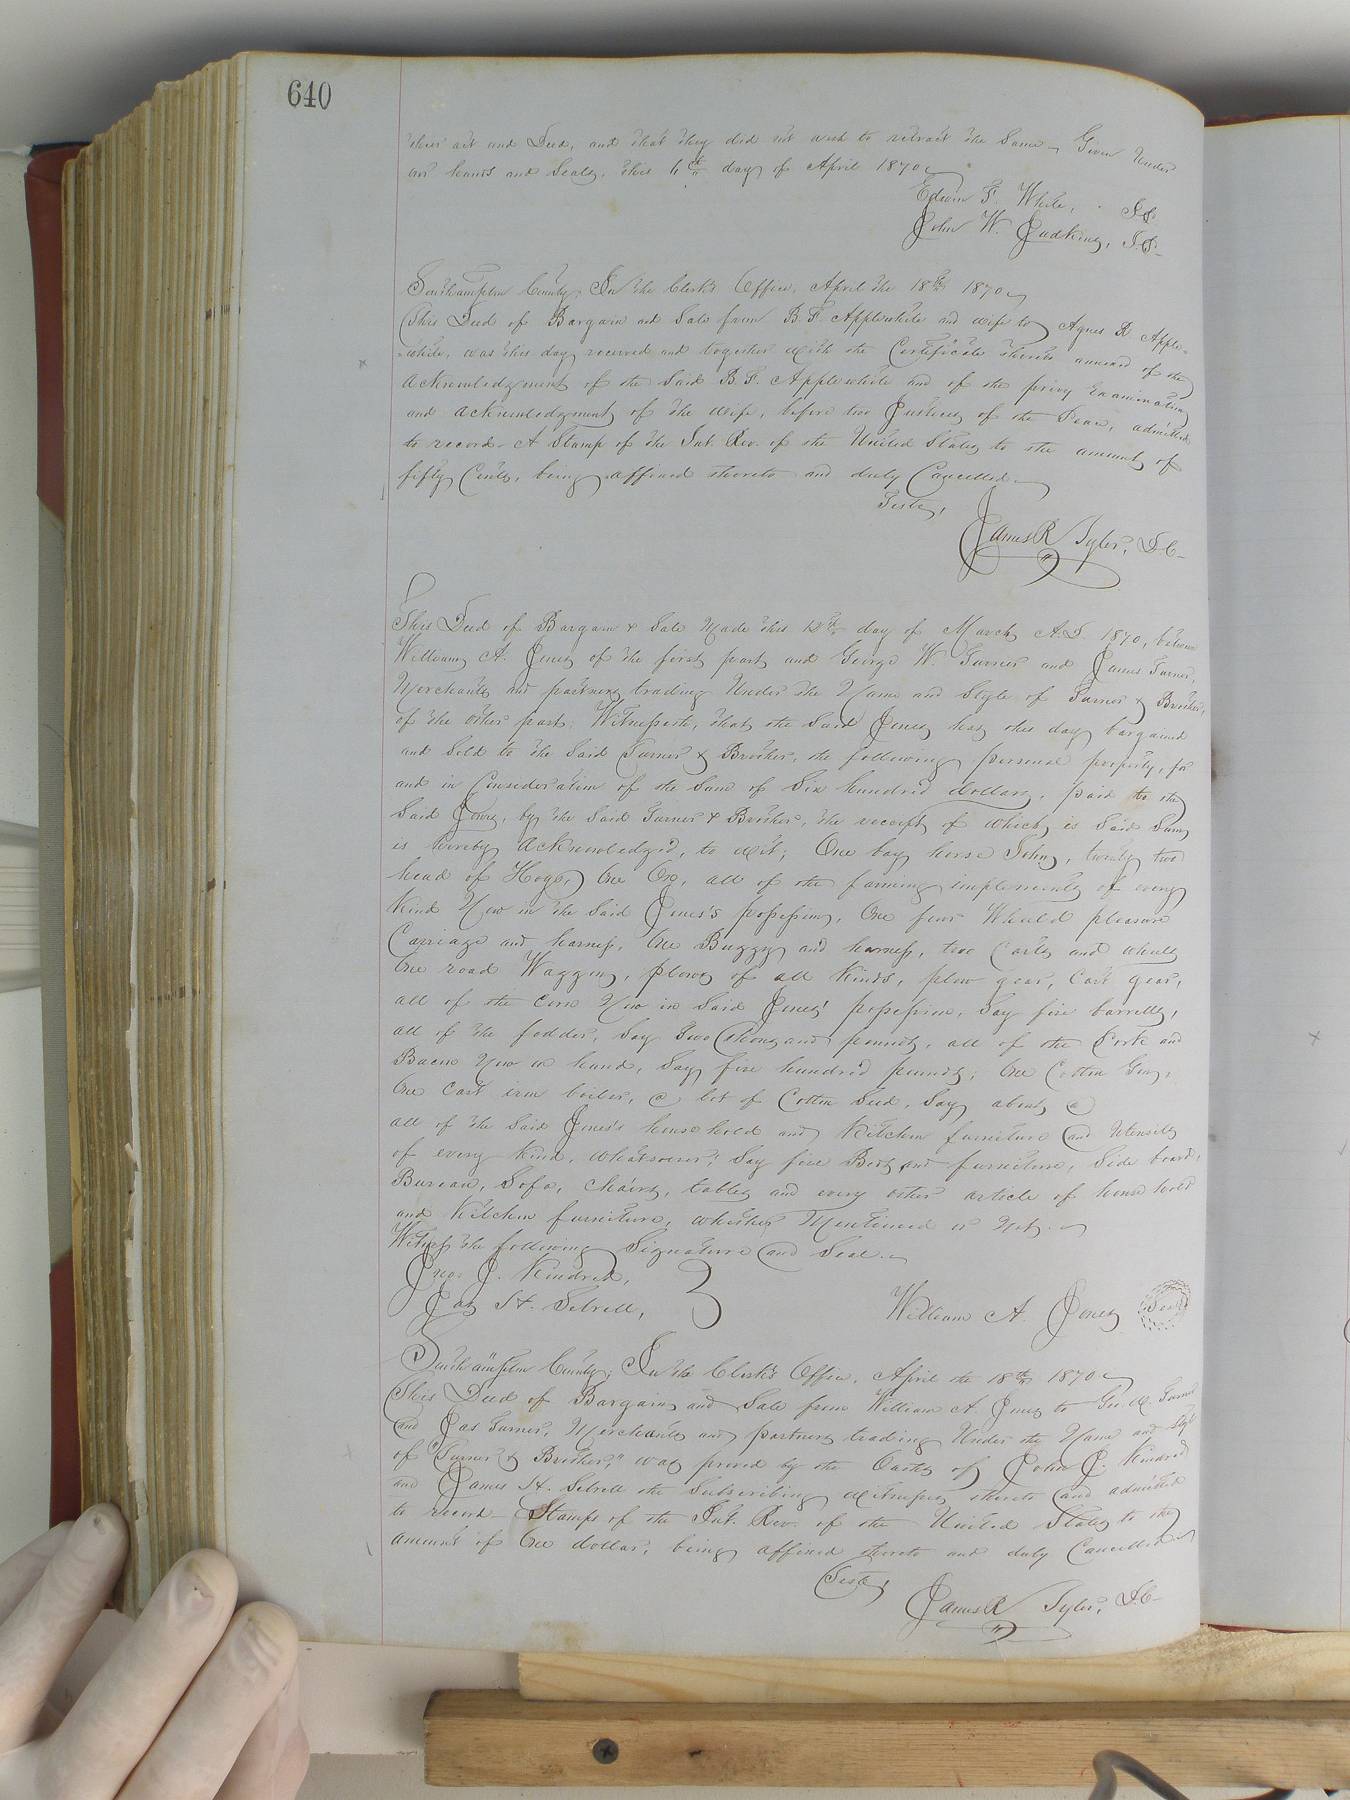 640
their act and Deed, and that they did not wish to retract the Same - Given Under
our hands and Seals, this 4th day of April 1870
Edwin F. White, J.P.
John W. Judkins, J.P.
Southampton County; In the Clerk's Office, April the 18th 1870
This Deed of Bargain and Sale from B. F. Applewhite and wife to Agnes R Apple-
-white, was this day received and together with the Certificate thereto annexed of the
Acknowledgment of the Said B. F. Applewhite and of the privy Examination
and Acknowledgment of the wife, before two Justices of the Peace, admitted
to record - A Stamp of the Int. Rev. of the United States to the amount of
fifty Cents, being affixed thereto and duly Cancelled
Teste,
James R Tyler, D.C.
This Deed of Bargain & Sale Made this 12th day of March A.D. 1870, between
William A. Jones of the first part and George W. Turner and James Turner,
Merchants and partners trading Under the Name and Style of Turner & Brother,
of the other part; Witnesseth, that the Said Jones has this day bargained
and Sold to the Said Turner & Brother, the following personal property, for
and in Consideration of the Sum of Six hundred dollars, paid to the
Said Jones, by the Said Turner & Brother, the receipt of which is Said Sum
is hereby Acknowledged, to wit; One bay horse John, twenty two
head of Hogs, One Ox, all of the farming implements of every
Kind Now in the Said Jones's possession, One four Wheeled pleasure
Carriage and harness, One Buggy and harness, two Carts and wheels
One road Waggon, plows of all Kinds, plow gear, Cart gear,
all of the corn Now in Said Jones' possession, Say five barrells,
all of the fodder, Say Two thousand pounds, all of the Pork and
Bacon Now on hand, Say five hundred pounds; One Cotton Gin,
One Cast iron boiler, a lot of Cotton Seed, Say about
all of the Said Jones's household and Kitchen furniture and Utensils
of every Kind, whatsoever; Say five Beds and furniture, Side board,
Bureau, Sofa, Chairs, tables and every other article of house hold
and Kitchen furniture, whether Mentioned or Not.
Witness the following Signature and Seal.
Jno. J. Kindred,
Jas H. Sebrell, William A. Jones Seal
Southampton County; In the Clerk's Office, April the 18th 1870
This Deed of Bargain and Sale from William A. Jones to Geo. W. Turner
and Jas Turner, Merchants and partners trading Under the Name and Style
of "Turner & Brother," was proved by the Oaths of John J. Kindred
and James H. Sebrell the Subscribing Witnesses thereto and admitted
to record - Stamps of the Int. Rev. of the United States to the
amount of One dollar, being affixed thereto and duly Cancelled
Teste,
James R Tyler, D.C.